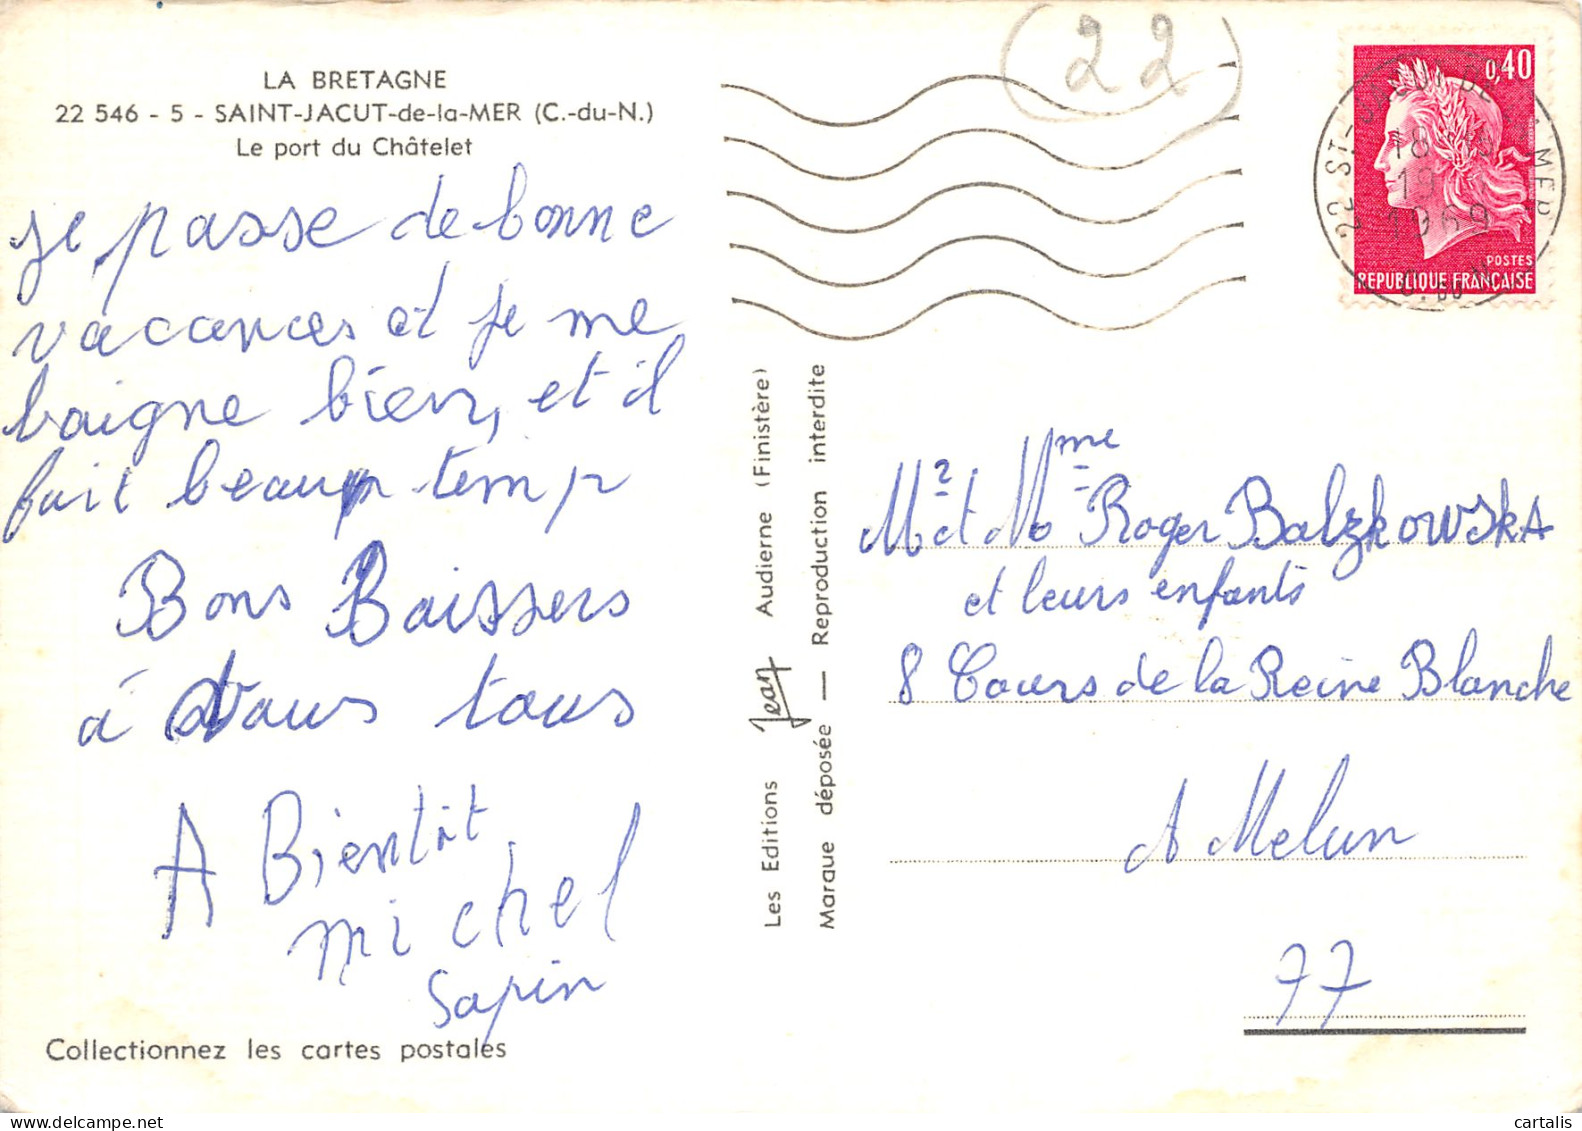 LA BRETAGNE
22 546 - 5 - SAINT-JACUT-de-la-MER (C.-du-N.)
Le port du Châtelet
je passe de bonne
vacances et je me
baigne bien, et il
fait beau temp
Bons Baissers
à vous tous
A Bientôt
michel
Sapin
Collectionnez les cartes postales
Les Editions Jean Audierne (Finistère)
Marque déposée — Reproduction interdite
22
0,40
POSTES
REPUBLIQUE FRANÇAISE
22 ST-JACUT DE LA MER
18
19
1969
C. DU N.
Mr et Mme Roger BalzkowskA
et leurs enfants
8 Cours de la Reine Blanche
A Melun
77
cartalis